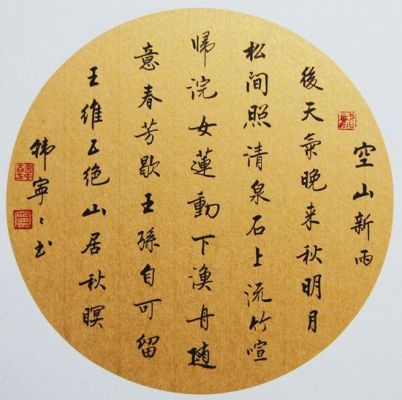 空山新雨
後天氣晚来秋明月
松間照清泉石上流竹喧
帰浣女蓮動下漁舟随
意春芳歇王孫自可留
王維五绝山居秋暝
韩寧〻书